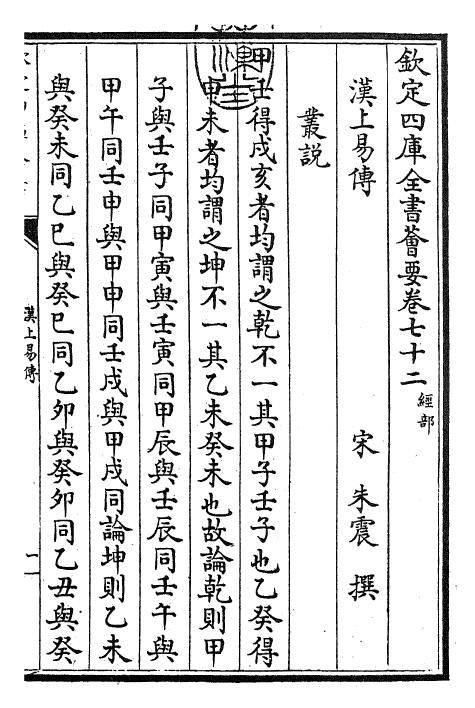 欽定四庫全書薈要卷七十二 經部
漢上易傳 宋 朱震 撰
叢説
甲壬得戌亥者均謂之乾不一其甲子壬子也乙癸得
申未者均謂之坤不一其乙未癸未也故論乾則甲
子與壬子同甲寅與壬寅同甲辰與壬辰同壬午與
甲午同壬申與甲申同壬戌與甲戌同論坤則乙未
與癸未同乙巳與癸巳同乙卯與癸卯同乙丑與癸
漢上易傳
一